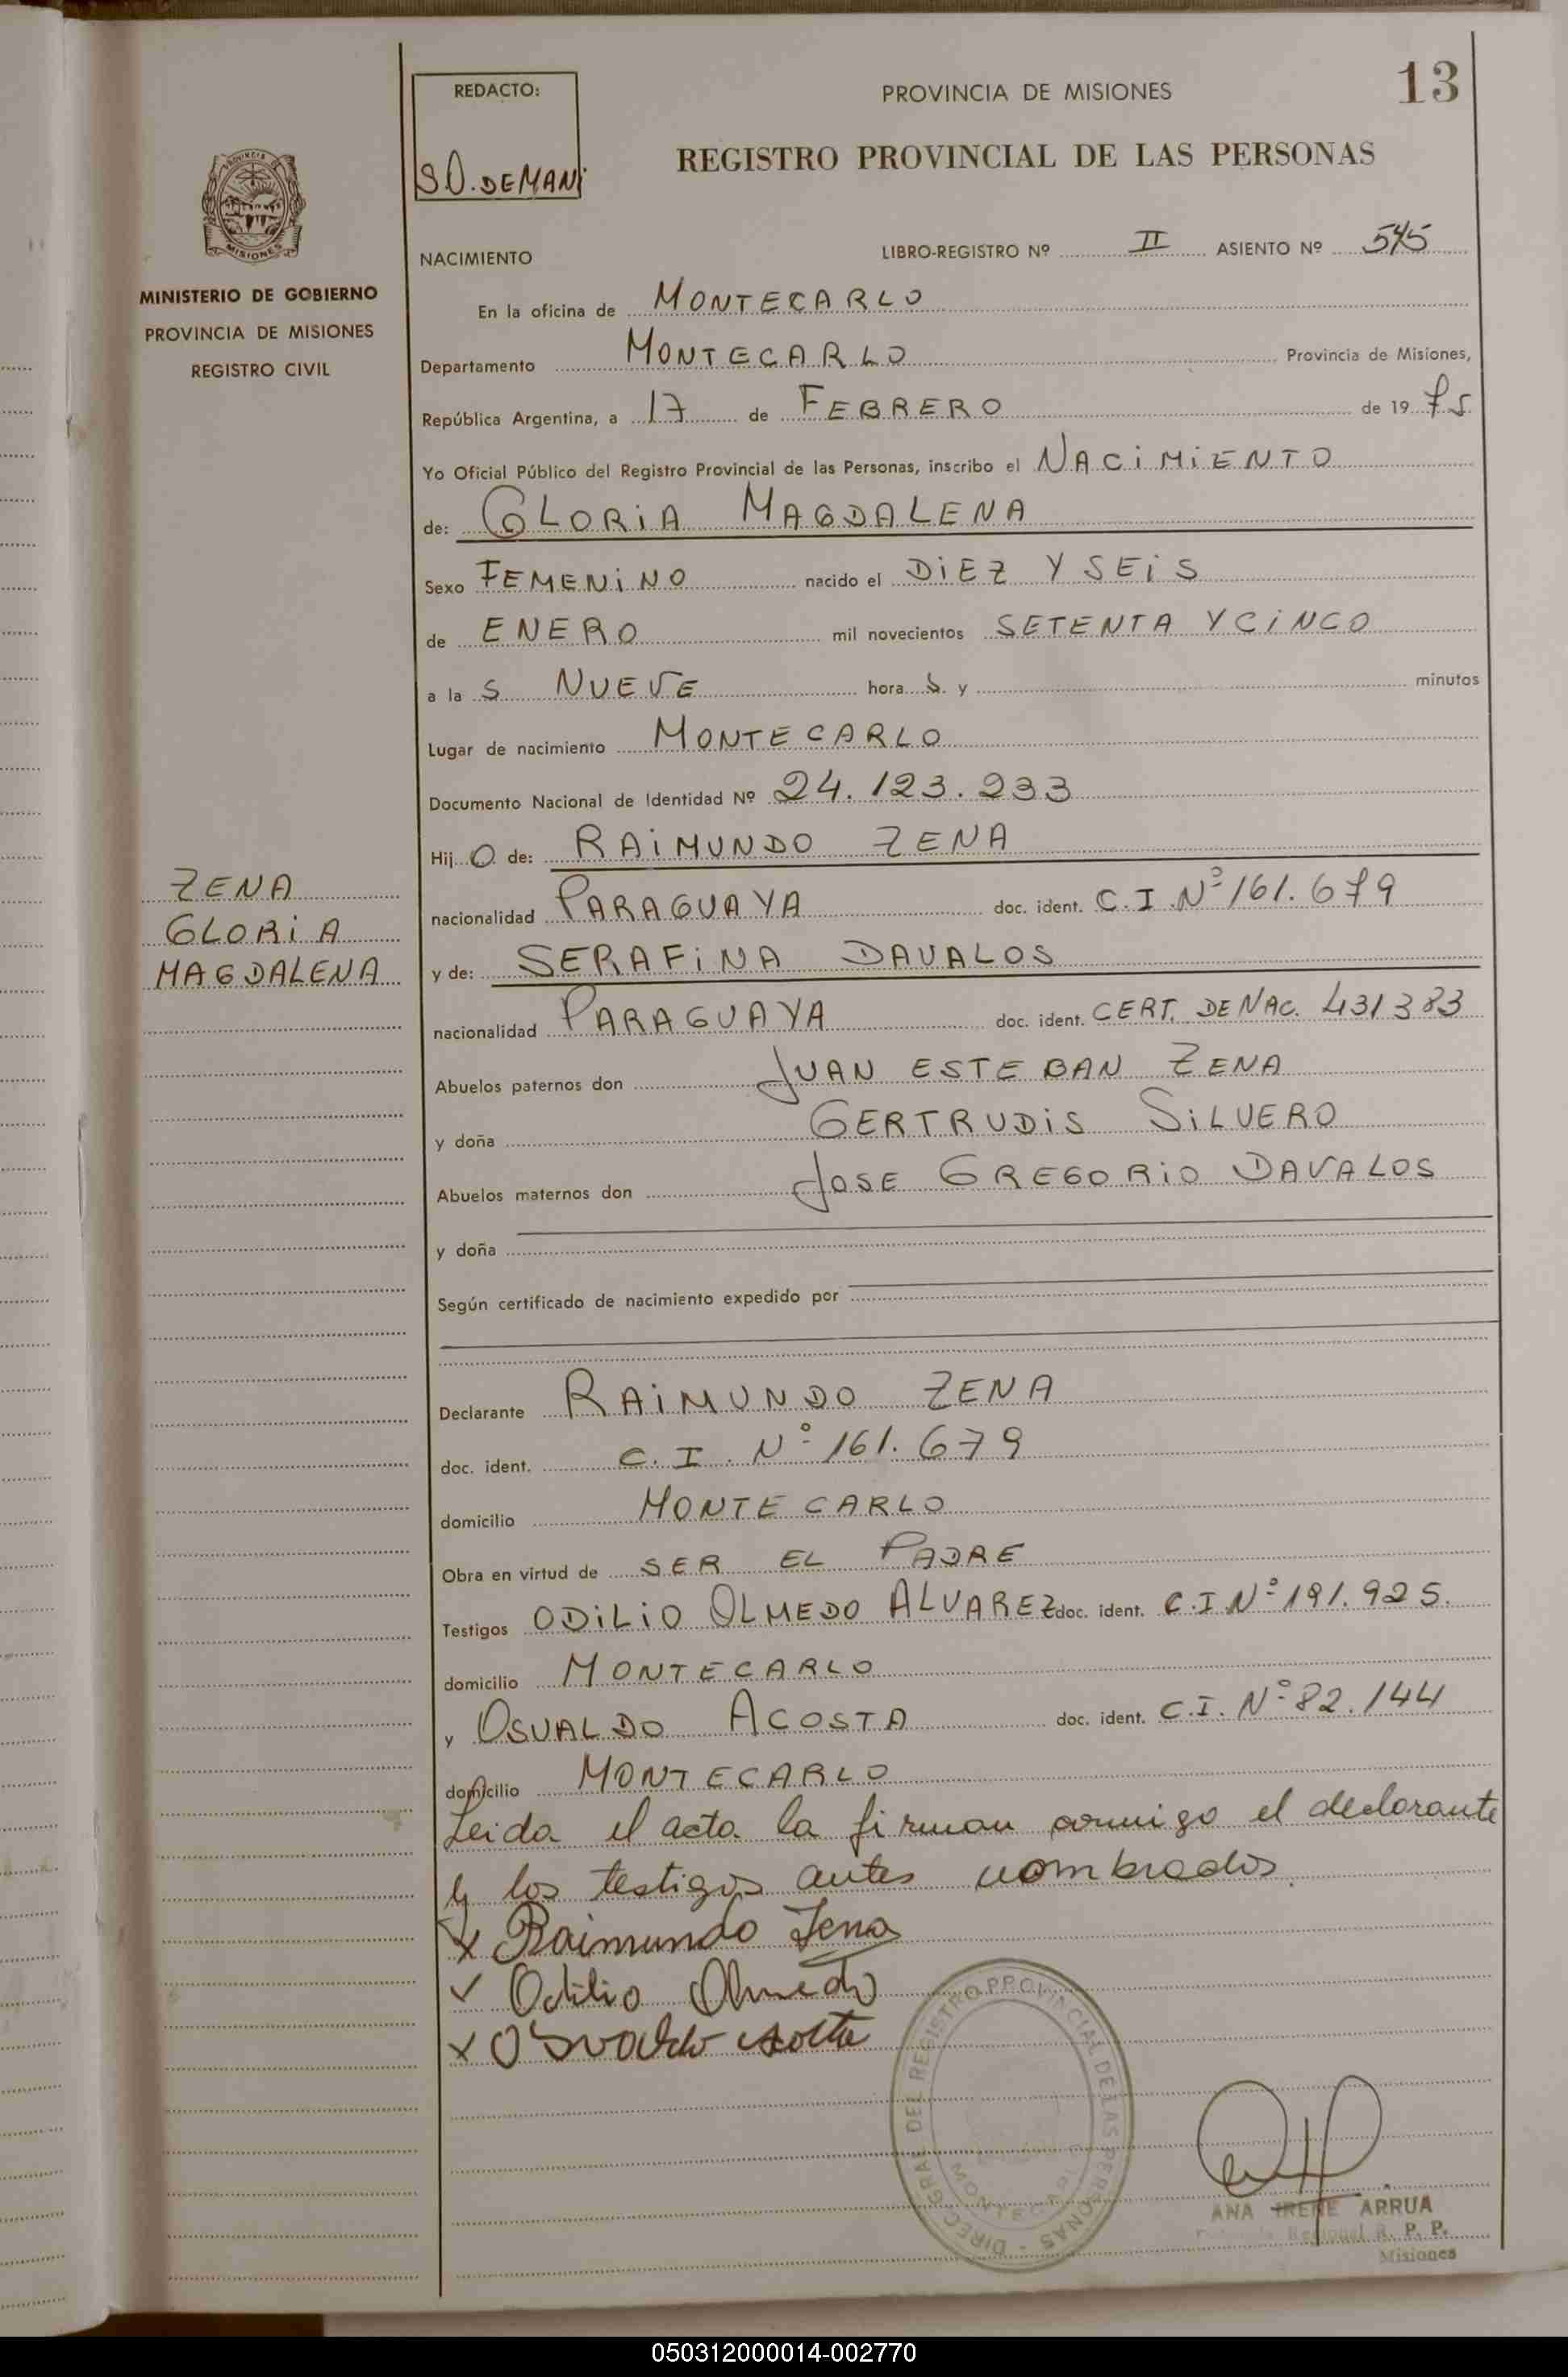 13
REDACTO:
S.O. DEMANI
PROVINCIA DE MISIONES
REGISTRO PROVINCIAL DE LAS PERSONAS
PROVINCIA DE
MISIONES
MINISTERIO DE GOBIERNO
PROVINCIA DE MISIONES
REGISTRO CIVIL
NACIMIENTO LIBRO-REGISTRO Nº II ASIENTO Nº 545
En la oficina de MONTECARLO
Departamento MONTECARLO Provincia de Misiones,
República Argentina, a 17 de FEBRERO de 1975
Yo Oficial Público del Registro Provincial de las Personas, inscribo el NACIMIENTO
de: GLORIA MAGDALENA
Sexo FEMENINO nacido el DIEZ Y SEIS
de ENERO mil novecientos SETENTA Y CINCO
a la S NUEVE hora S. y minutos
Lugar de nacimiento MONTECARLO
Documento Nacional de Identidad Nº 24.123.233
Hij O de: RAIMUNDO ZENA
ZENA
GLORIA
MAGDALENA
nacionalidad PARAGUAYA doc. ident. C.I. Nº 161.679
y de: SERAFINA DAVALOS
nacionalidad PARAGUAYA doc. ident. CERT. DE NAC. 431383
Abuelos paternos don JUAN ESTEBAN ZENA
y doña GERTRUDIS SILVERO
Abuelos maternos don JOSE GREGORIO DAVALOS
y doña
Según certificado de nacimiento expedido por
Declarante RAIMUNDO ZENA
doc. ident. C.I. Nº 161.679
domicilio MONTECARLO
Obra en virtud de SER EL PADRE
Testigos ODILIO OLMEDO ALVAREZ doc. ident. C.I Nº 191.925.
domicilio MONTECARLO
y OSVALDO ACOSTA doc. ident. C.I. Nº 82.144
domicilio MONTECARLO
Leida el acta la firman conmigo el declarante
y los testigos antes nombrados.
x Raimundo Zena
x Odilio Olmedo
x Osvaldo Acosta
DIREC. GRAL. DEL REGISTRO PROVINCIAL DE LAS PERSONAS -
MONTECARLO
ANA IRENE ARRUA
Regional R. P. P.
Misiones
050312000014-002770